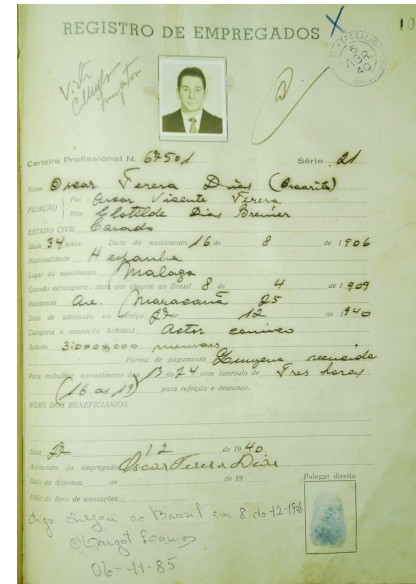 REGISTRO DE EMPREGADOS
10
Visto
Carteira Profissional N. 67501 Série 21
Nome Oscar Teresa Dias (Oscarito)
FILIAÇÃO Pai Oscar Vicente Teresa
Mãe Clotilde Dias Brenier
ESTADO CIVIL Casado
Idade 34 anos. Data do nascimento 16 de 8 de 1906
Nacionalidade Hespanha
Lugar do nascimento Malaga
Quando estrangeiro: data que chegou ao Brasil 8 de 4 de 1909
Residencia Ave. Maracanã 25
Data de admissão ao serviço 27 de 12 de 1940
Categoria e ocupação habitual Actor comico
Salario 3:000$000 mensaes
Fórma de pagamento Quinzena vencida
Para trabalhar normalmente das 13 ás 24 com intervalo de Tres horas
(16 as 19) para refeição e descanço.
NOME DOS BENEFICIARIOS
Data 27 12 de 1940.
Assinatura do empregado Oscar Teresa Dias
Data da dispensa de de 19
Polegar direito
Folio do livro de anotações
digo chegou ao Brazil em 8 do 12-1908
Margot Louro
06-11-85